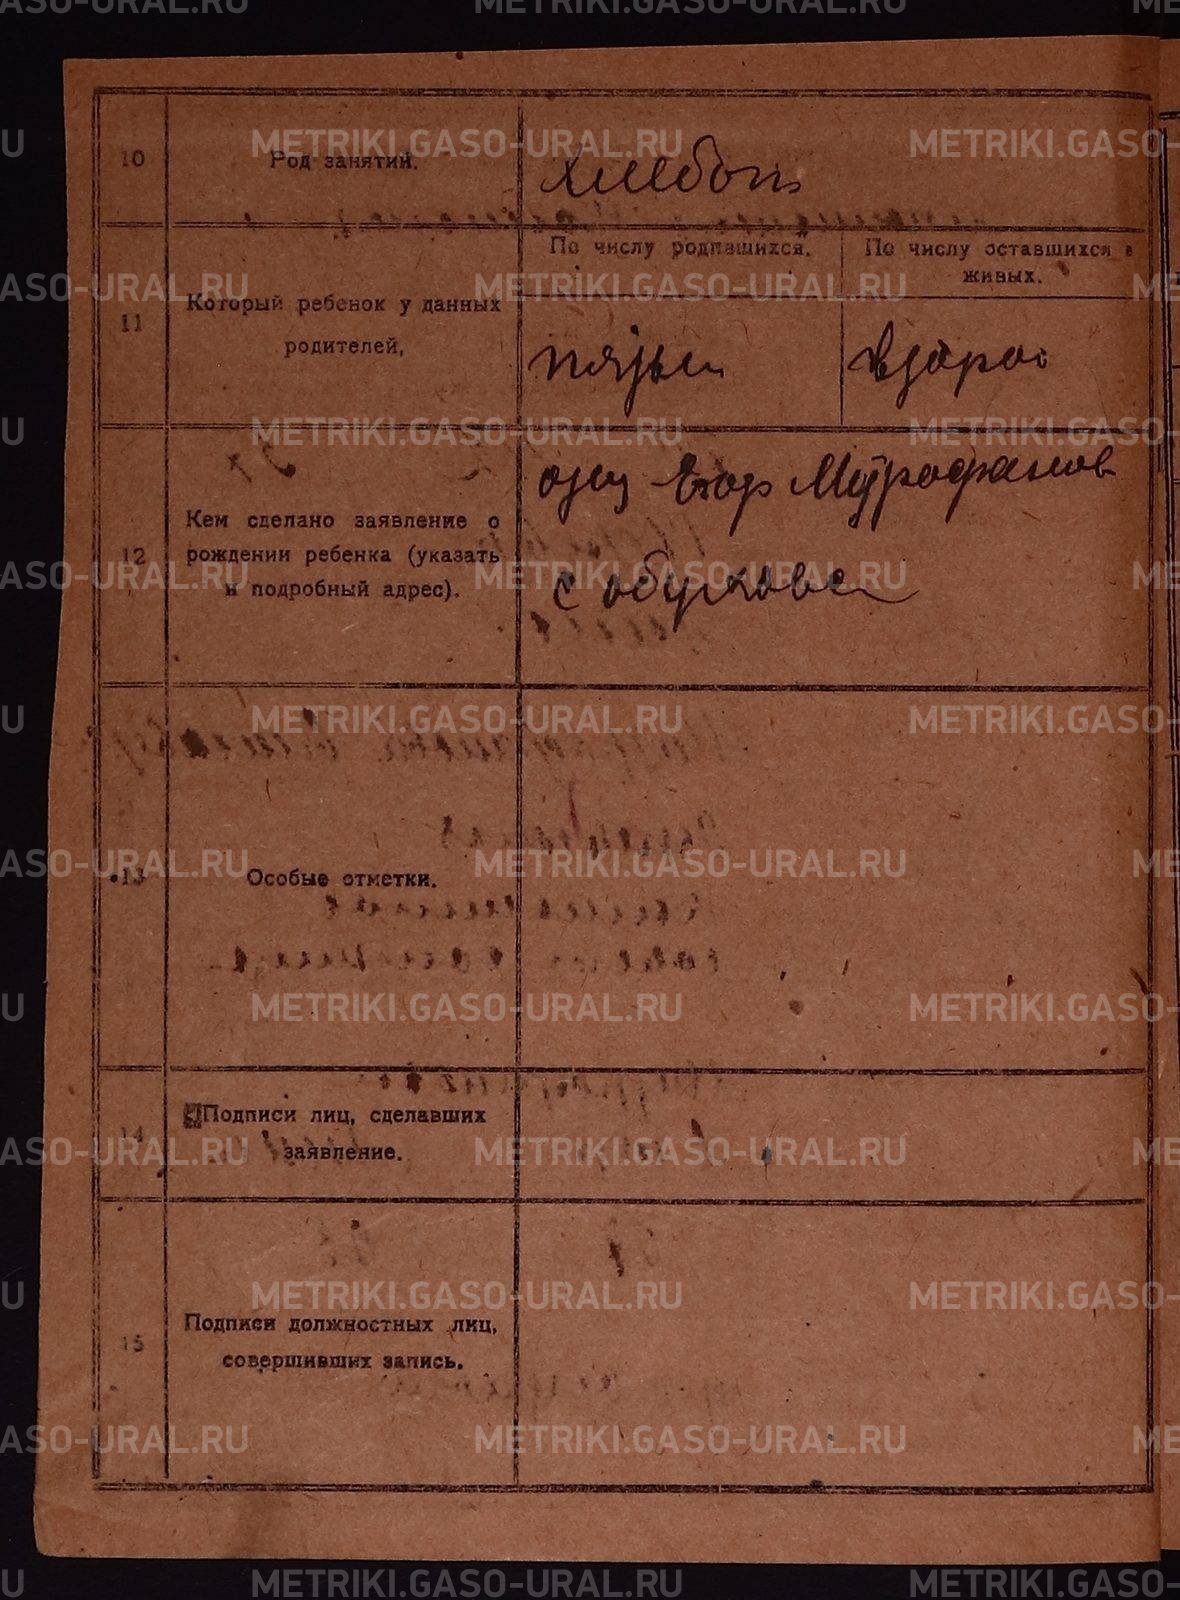 10
Род занятий.
хлебоп
11
Который ребенок у данных
родителей,
По числу родившихся.
По числу оставшихся в
живых.
пятый
второй
12
Кем сделано заявление о
рождении ребенка (указать
и подробный адрес).
отец Егор Митрофанов
с обухове
13
Особые отметки.
14
Подписи лиц, сделавших
заявление.
15
Подписи должностных лиц,
совершивших запись.
METRIKI.GASO-URAL.RU